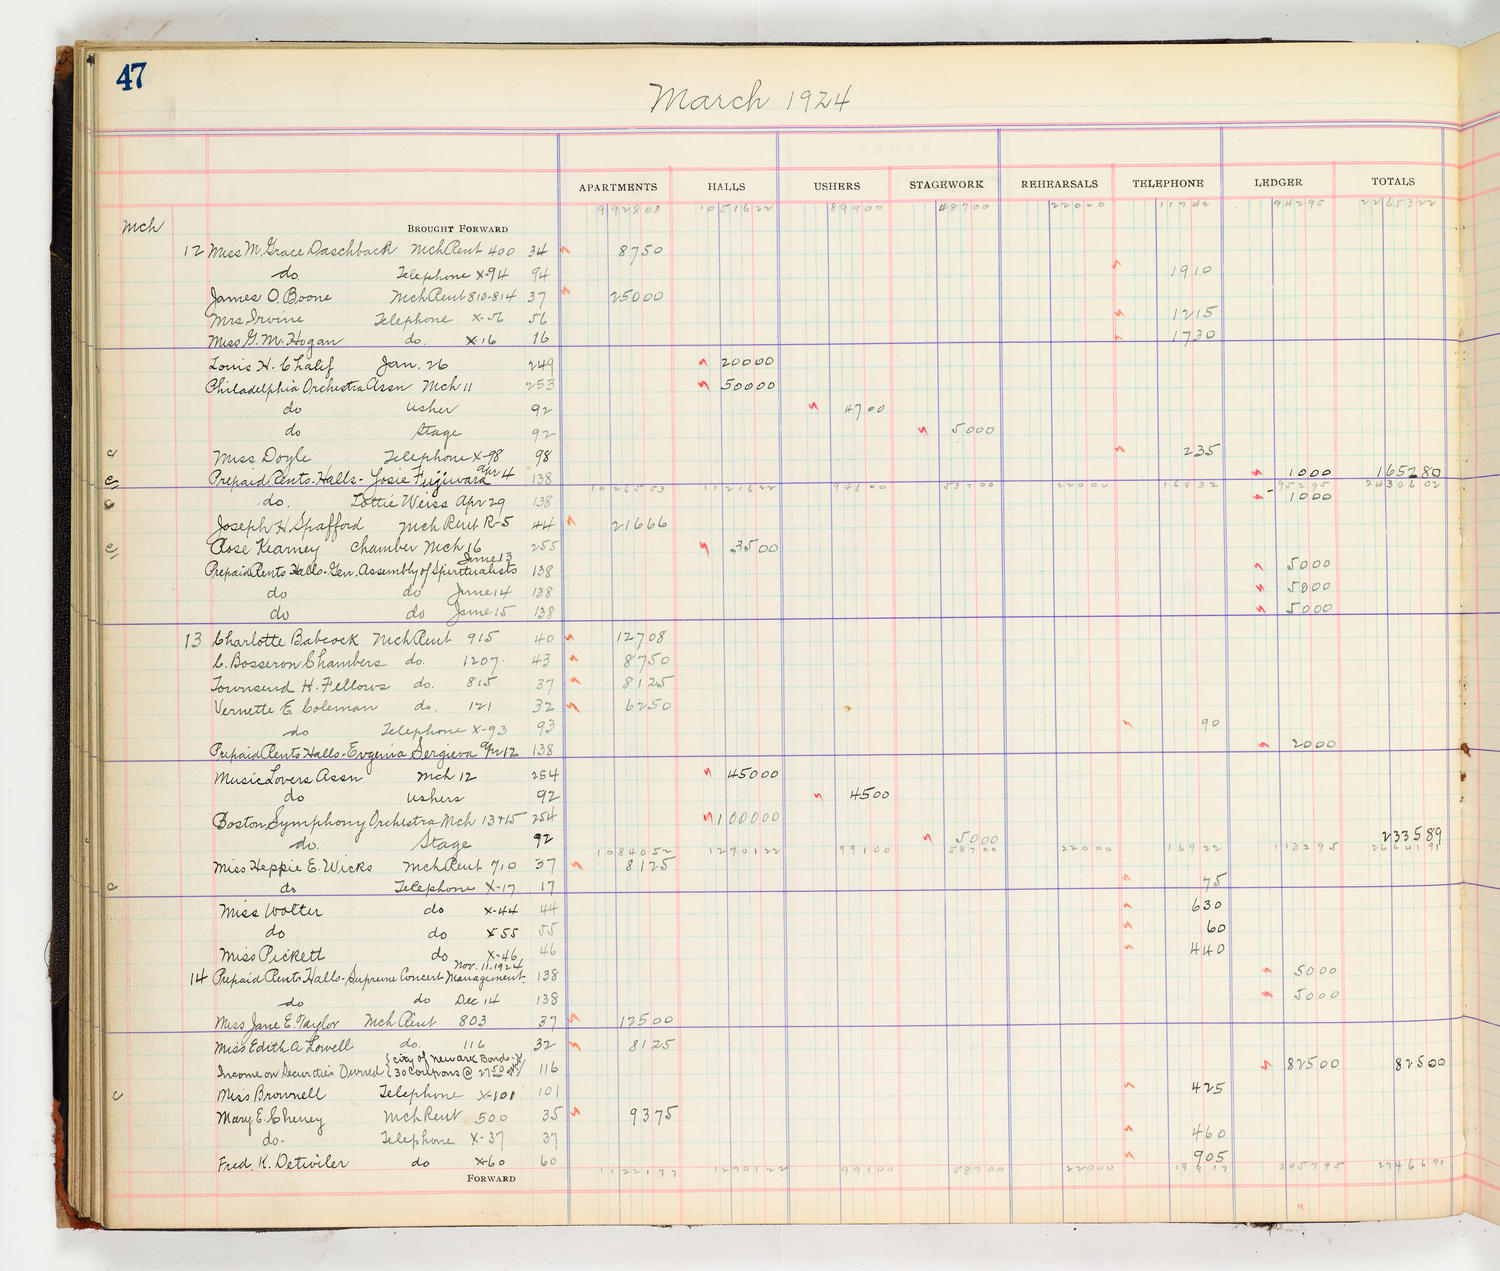 47
March 1924
APARTMENTS HALLS USHERS STAGEWORK REHEARSALS TELEPHONE LEDGER TOTALS
992803 1051622 89900 48700 22000 11742 94295 2265322
Mch BROUGHT FORWARD
12 Miss M. Grace Daschback Mch Rent 400 34 8750
do Telephone X-94 94 1910
James O. Boone Mch Rent 810-814 37 25000
Mrs Irvine Telephone X-56 56 1215
Miss G. M. Hogan do. X-16 16 1730
Louis H. Chalif Jan. 26 249 20000
Philadelphia Orchestra Assn Mch 11 253 50000
do usher 92 4700
do Stage 92 5000
c Miss Doyle Telephone X-98 98 235
Prepaid Rents-Halls- Josie Fujiwara Apr 4 138 1000 165280
1026553 121622 94600 53700 22000 16832 95295 2430602
do. Lottie Weiss Apr 29 138 1000
Joseph H. Spafford Mch Rent R-5 44 21666
Rose Kearney Chamber Mch 16 255 3500
Prepaid Rents Halls-Gen. Assembly of Spiritualists June 13 138 5000
do do June 14 138 5000
do do June 15 138 5000
13 Charlotte Babcock Mch Rent 915 40 12708
C. Bosseron Chambers do. 1207. 43 8750
Townsend H. Fellows do. 815 37 8125
Vernette E Coleman do. 121 32 6250
do Telephone X-93 93 90
Prepaid Rents Halls-Evgenia Sergieva Apr 12 138 2000
Music Lovers Assn Mch 12 254 45000
do ushers 92 4500
Boston Symphony Orchestra Mch 13+15 254 100000
do. Stage 92 5000 233589
1084052 1270122 99100 58700 22000 16922 113295 2664191
Miss Heppie E. Wicks Mch Rent 710 37 8125
c do Telephone X-17 17 75
Miss Wolter do X-44 44 630
do do X 55 55 60
Miss Pickett do X-46 46 440
14 Prepaid Rents Halls-Supreme Concert Management. Nov. 11, 1924 138 5000
do do Dec 14 138 5000
Miss Jane E. Taylor Mch Rent 803 37 12500
Miss Edith A Lowell do. 116 32 8125
Income on Securities Owned {City of Newark Bonds
30 Coupons @ 27 50 116 82500 82500
c Miss Brownell Telephone X-101 101 425
Mary E. Cheney Mch Rent 500 35 9375
do. Telephone X-37 37 460
Fred. K. Detwiler do X-60 60 905
1122177 1270122 99100 58700 22000 19917 205795 2746691
FORWARD